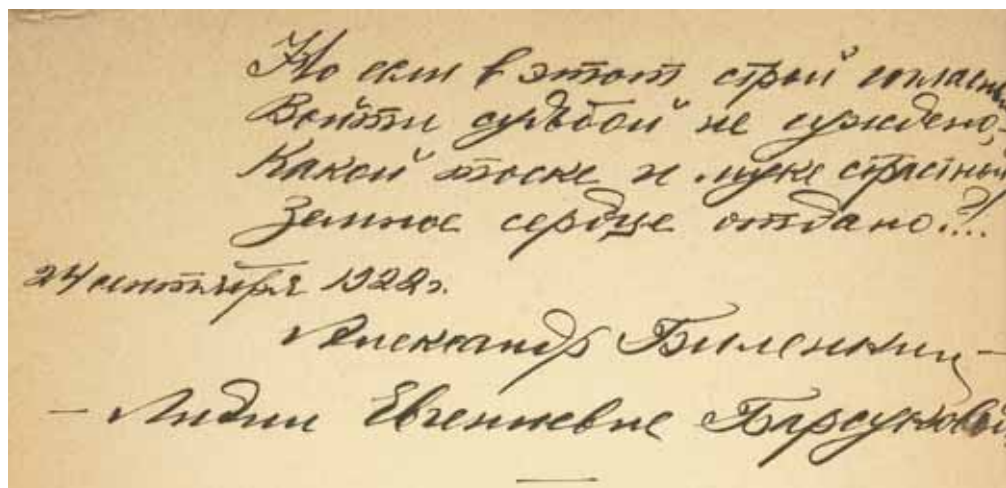 Но если в этот строй согласны
Войти судьбой не суждено,
Какой тоске и муке страстный
Земное сердце отдано?!...
24 сентября 1922 г.
Александр Биленкин —
— Лидии Евгениевне Барсуковой